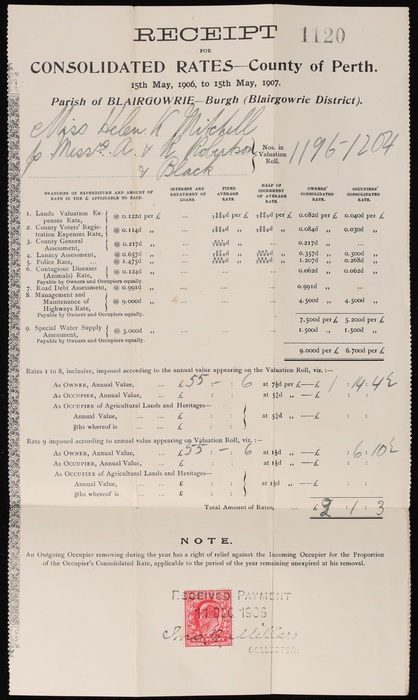 RECEIPT 1120
FOR
CONSOLIDATED RATES—County of Perth.
15th May, 1906, to 15th May, 1907.
Parish of BLAIRGOWRIE—Burgh (Blairgowrie District).
Miss Helen K Mitchell
p Messrs. A. & R. Robertson
& Black
Nos. in Valuation Roll. 1196-1204
BRANCHES OF EXPENDITURE AND AMOUNT OF RATE IN THE £ APPLICABLE TO EACH. INTEREST AND REPAYMENT OF LOANS. FIXED AVERAGE RATE. HALF OF INCREMENT OF AVERAGE RATE. OWNERS' CONSOLIDATED RATE. OCCUPIERS' CONSOLIDATED RATE.
1. Lands Valuation Expenses Rate, @ 0.122d per £ 0.082d per £ 0.040d per £
2. County Voters' Registration Expenses Rate, @ 0.114d „ 0.084d „ 0.030d „
3. County General Assessment, @ 0.217d „ 0.217d „
4. Lunacy Assessment, @ 0.657d „ 0.357d „ 0.300d „
5. Police Rate, @ 1.475d „ 1.207d „ 0.268d „
6. Contagious Diseases (Animals) Rate, @ 0.124d „ 0.062d „ 0.062d „
Payable by Owners and Occupiers equally.
7. Road Debt Assessment, @ 0.991d „ 0.991d „
8. Management and Maintenance of Highways Rate, @ 9.000d „ 4.500d „ 4.500d „
Payable by Owners and Occupiers equally.
7.500d per £ 5.200d per £
9. Special Water Supply Assessment, @ 3.000d „ 1.500d „ 1.500d „
Payable by Owners and Occupiers equally.
9.000d per £ 6.700d per £
Rates 1 to 8, inclusive, imposed according to the annual value appearing on the Valuation Roll, viz. :—
AS OWNER, Annual Value, £55 - : 6 at 7½d per £—£ 1 : 14 : 4½
AS OCCUPIER, Annual Value, £ : : at 5¼d „ —£ : :
AS OCCUPIER of Agricultural Lands and Heritages—
Annual Value, £ : : at 5¼d „ —£ : :
⅜ths whereof is £
Rate 9 imposed according to annual value appearing on Valuation Roll, viz. :—
AS OWNER, Annual Value, £55 - : 6 at 1½d „ —£ : 6 : 10½
AS OCCUPIER, Annual Value, £ : : at 1½d „ —£ : :
AS OCCUPIER of Agricultural Lands and Heritages—
Annual Value, £ : : at 1½d „ —£ : :
⅜ths whereof is £
Total Amount of Rates, £2 : 1 : 3
NOTE.
An Outgoing Occupier removing during the year has a right of relief against the Incoming Occupier for the Proportion
of the Occupier's Consolidated Rate, applicable to the period of the year remaining unexpired at his removal.
RECEIVED PAYMENT
11 DEC 1906
Miller
COLLECTOR.